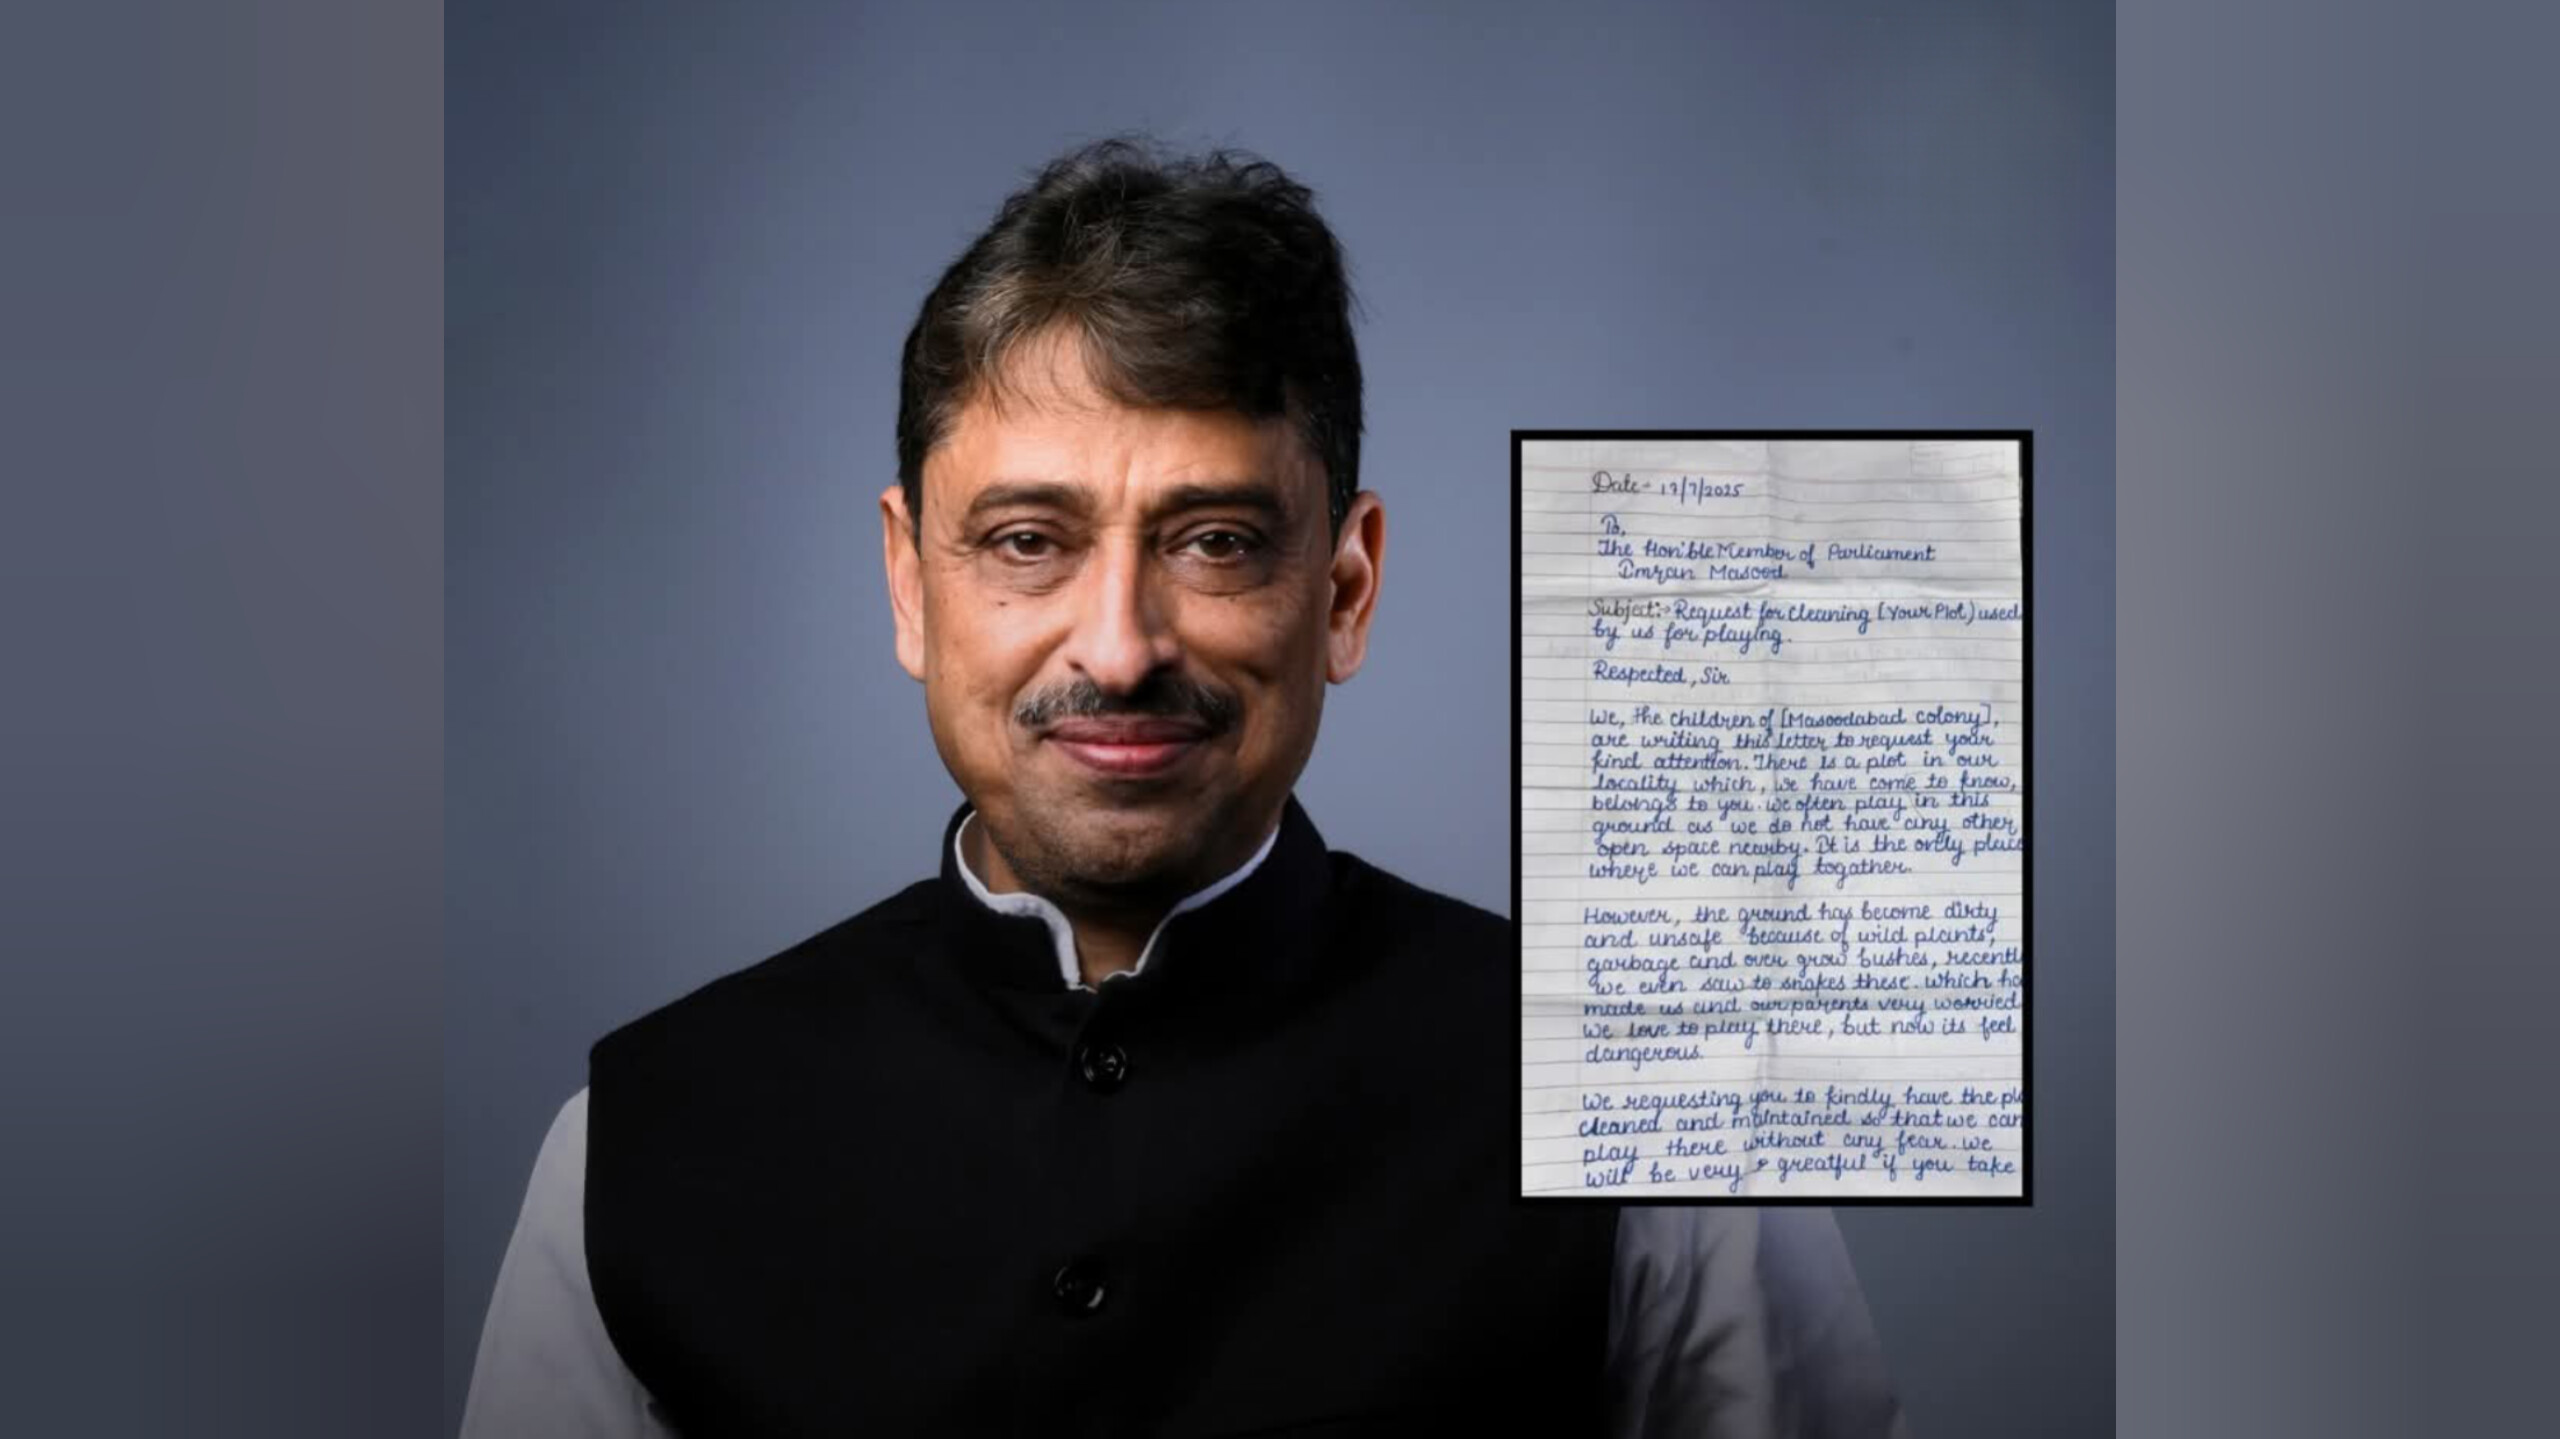 Date- 17/7/2025
To,
The Hon'ble Member of Parliament
Imran Masood
Subject:- Request for cleaning [Your Plot) used
by us for playing.
Respected, Sir
We, the children of [Masoodabad colony],
are writing this letter to request your
kind attention. There is a plot in our
locality which, we have come to know,
belongs to you. we often play in this
ground as we do not have any other
open space nearby. It is the only place
where we can play togather.
However, the ground has become dirty
and unsafe because of wild plants,
garbage and over grow bushes, recentl
we even saw to snakes these. which ha
made us and our parents very worried
we love to play there, but now its feel
dangerous.
We requesting you to kindly have the plo
cleaned and maintained so that we can
play there without any fear. we
will be very greatful if you take